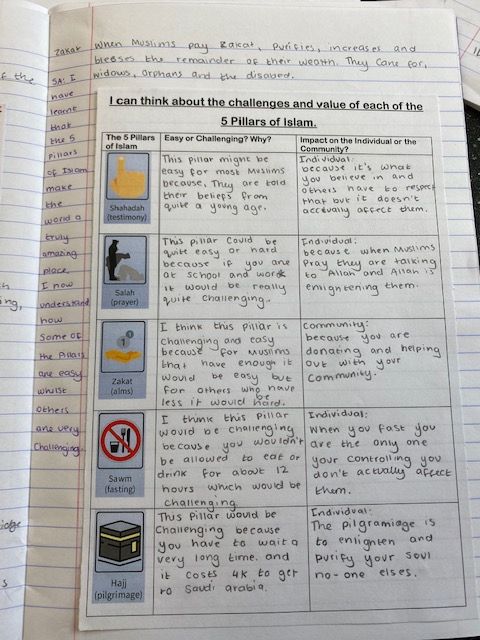 Zakat
When Muslims pay Zakat, Purifies, increases and
blesses the remainder of their wealth. They Cane for,
widows, orphans and the disabed.
SA: I
have
learnt
that
the 5
Pillars
of Islam
make
the
world a
truly
amazing
place.
I now
understand
how
Some of
the Pillars
are easy
whilst
others
are very
Challenging.
I can think about the challenges and value of each of the
5 Pillars of Islam.
The 5 Pillars
of Islam
Easy or Challenging? Why?
Impact on the Individual or the
Community?
Shahadah
(testimony)
This Pillar might be
easy for most Muslims
because, They are told
their beliefs from
quite a young age.
Individual:
because it's what
you believe in and
others have to respect
that but it doesn't
actually affect them.
Salah
(prayer)
This Pillar Could be
quite easy or hard
because if you are
at school and work
it would be really
quite challenging.
Individual:
because when Muslims
Pray they are talking
to Allah and Allah is
enlightening them.
Zakat
(alms)
I think this Pillar is
challenging and easy
because for Muslims
that have enough it
would be easy but
for others who have
less it would be hard.
Community:
because you are
donating and helping
out with your
Community.
Sawm
(fasting)
I think this Pillar
would be challenging
because you wouldn't
be allowed to eat or
drink for about 12
hours which would be
challenging
Individual:
When you fast you
are the only one
your controlling you
don't actually affect
them.
Hajj
(pilgrimage)
This Pillar would be
Challenging because
you have to wait a
very long time. and
it costs 4K to get
to Saudi arabia.
Individual:
The pilgramiage is
to enlighten and
Purify your soul
no-one elses.